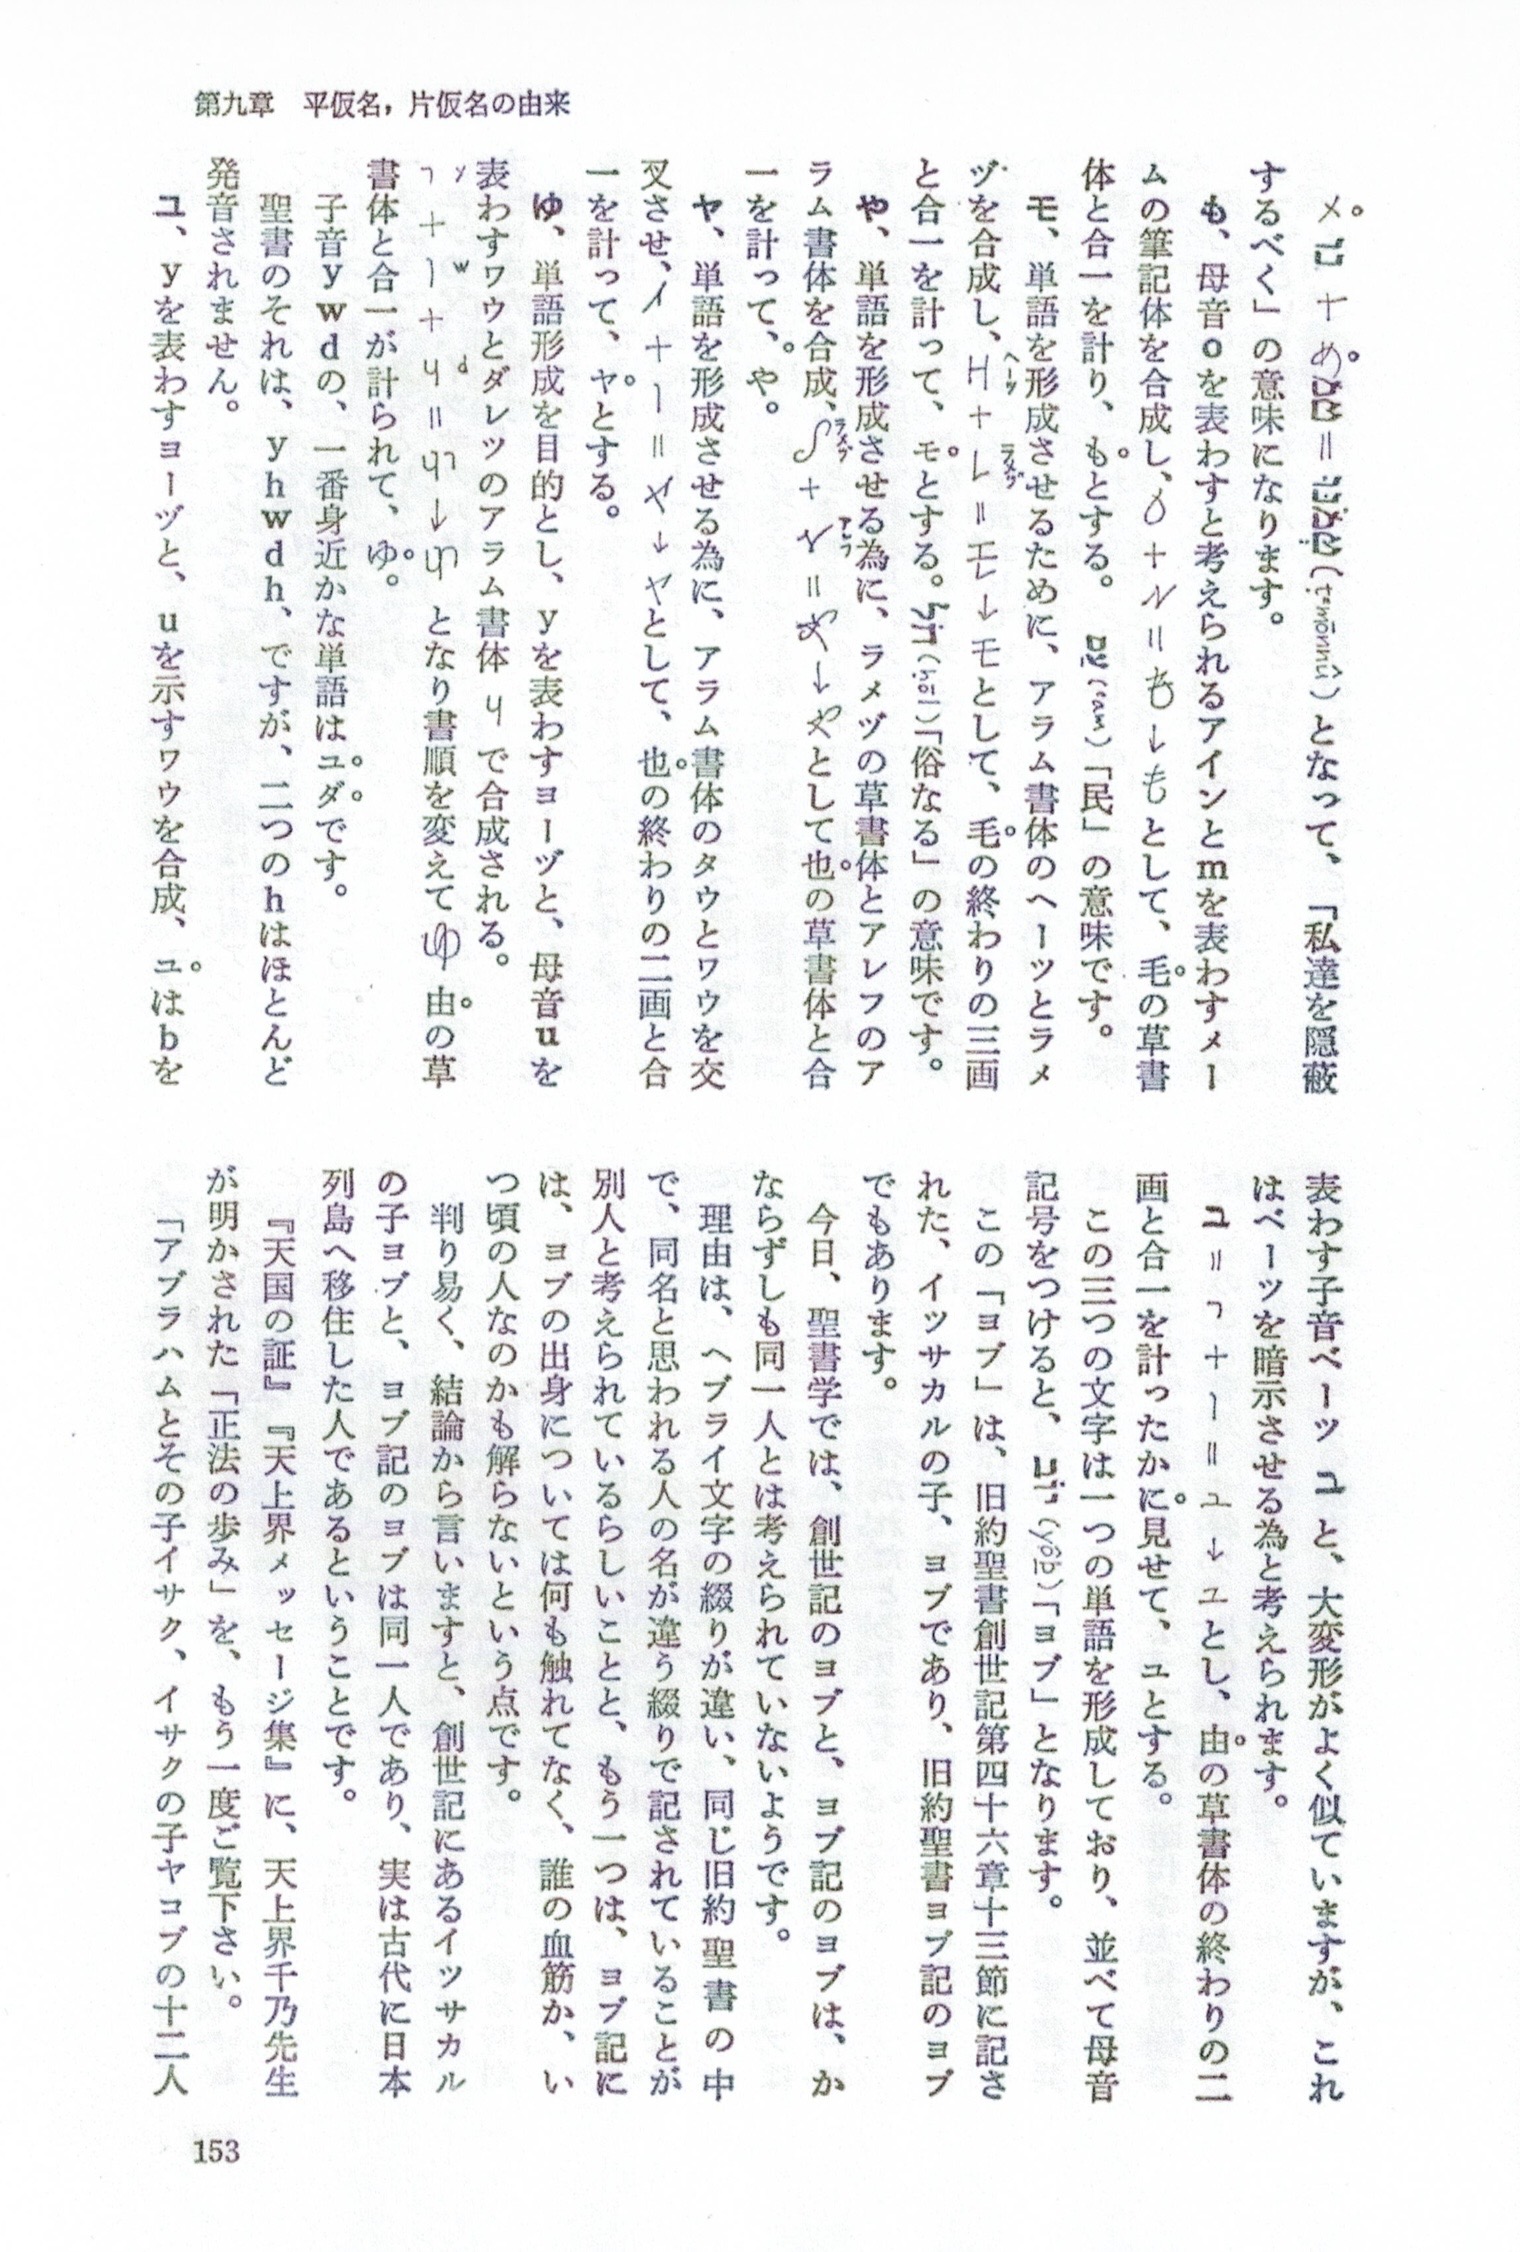 第九章　平仮名，片仮名の由来
メ נו + め טמ = (tᵉmōnnû) となって、「私達を隠蔽
するべく」の意味になります。
も、母音oを表わすと考えられるアインとmを表わすメー
ムの筆記体を合成し、+ = も→もとして、毛の草書
体と合一を計り、もとする。 עם (‘am)「民」の意味です。
モ、単語を形成させるために、アラム書体のヘーツとラメ
ヅを合成し、H + レ = モ→モとして、毛の終わりの三画
と合一を計って、モとする。חל (ḥōl)「俗なる」の意味です。
や、単語を形成させる為に、ラメヅの草書体とアレフのア
ラム書体を合成、+ = や→やとして也の草書体と合
一を計って、や。
ヤ、単語を形成させる為に、アラム書体のタウとワウを交
叉させ、イ + 一 = ヤ→ヤとして、也の終わりの二画と合
一を計って、ヤとする。
ゆ、単語形成を目的とし、yを表わすヨーヅと、母音uを
表わすワウとダレツのアラム書体 ч で合成される。
y w d + + ч = → となり書順を変えて ゆ 由の草
書体と合一が計られて、ゆ。
子音ywdの、一番身近かな単語はユダです。
聖書のそれは、yhwdh、ですが、二つのhはほとんど
発音されません。
ユ、yを表わすヨーヅと、uを示すワウを合成、ユはbを
表わす子音ベーツ ユ と、大変形がよく似ていますが、これ
はベーツを暗示させる為と考えられます。
ユ = ㄱ + 一 = ユ→ユとし、由の草書体の終わりの二
画と合一を計ったかに見せて、ユとする。
この三つの文字は一つの単語を形成しており、並べて母音
記号をつけると、יוב (yôḇ)「ヨブ」となります。
この「ヨブ」は、旧約聖書創世記第四十六章十三節に記さ
れた、イッサカルの子、ヨブであり、旧約聖書ヨブ記のヨブ
でもあります。
今日、聖書学では、創世記のヨブと、ヨブ記のヨブは、か
ならずしも同一人とは考えられていないようです。
理由は、ヘブライ文字の綴りが違い、同じ旧約聖書の中
で、同名と思われる人の名が違う綴りで記されていることが
別人と考えられているらしいことと、もう一つは、ヨブ記に
は、ヨブの出身については何も触れてなく、誰の血筋か、い
つ頃の人なのかも解らないという点です。
判り易く、結論から言いますと、創世記にあるイッサカル
の子ヨブと、ヨブ記のヨブは同一人であり、実は古代に日本
列島へ移住した人であるということです。
『天国の証』『天上界メッセージ集』に、天上界千乃先生
が明かされた「正法の歩み」を、もう一度ご覧下さい。
「アブラハムとその子イサク、イサクの子ヤコブの十二人
153